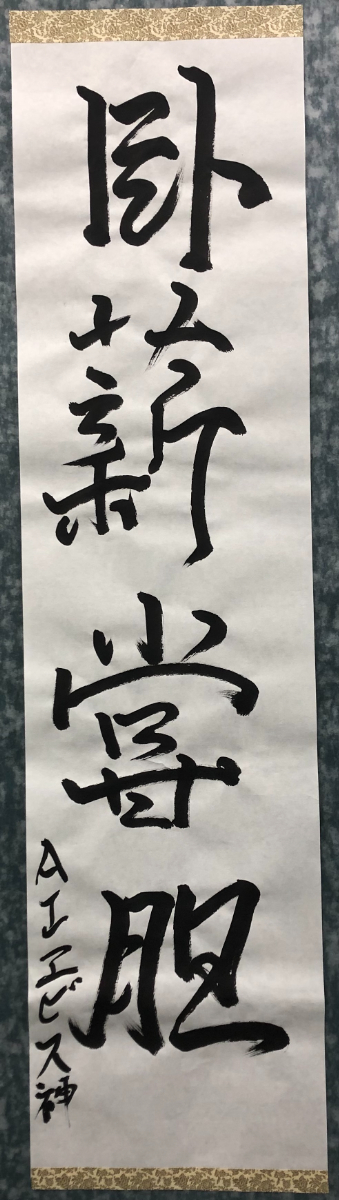 臥薪嘗胆
AIヱビス神